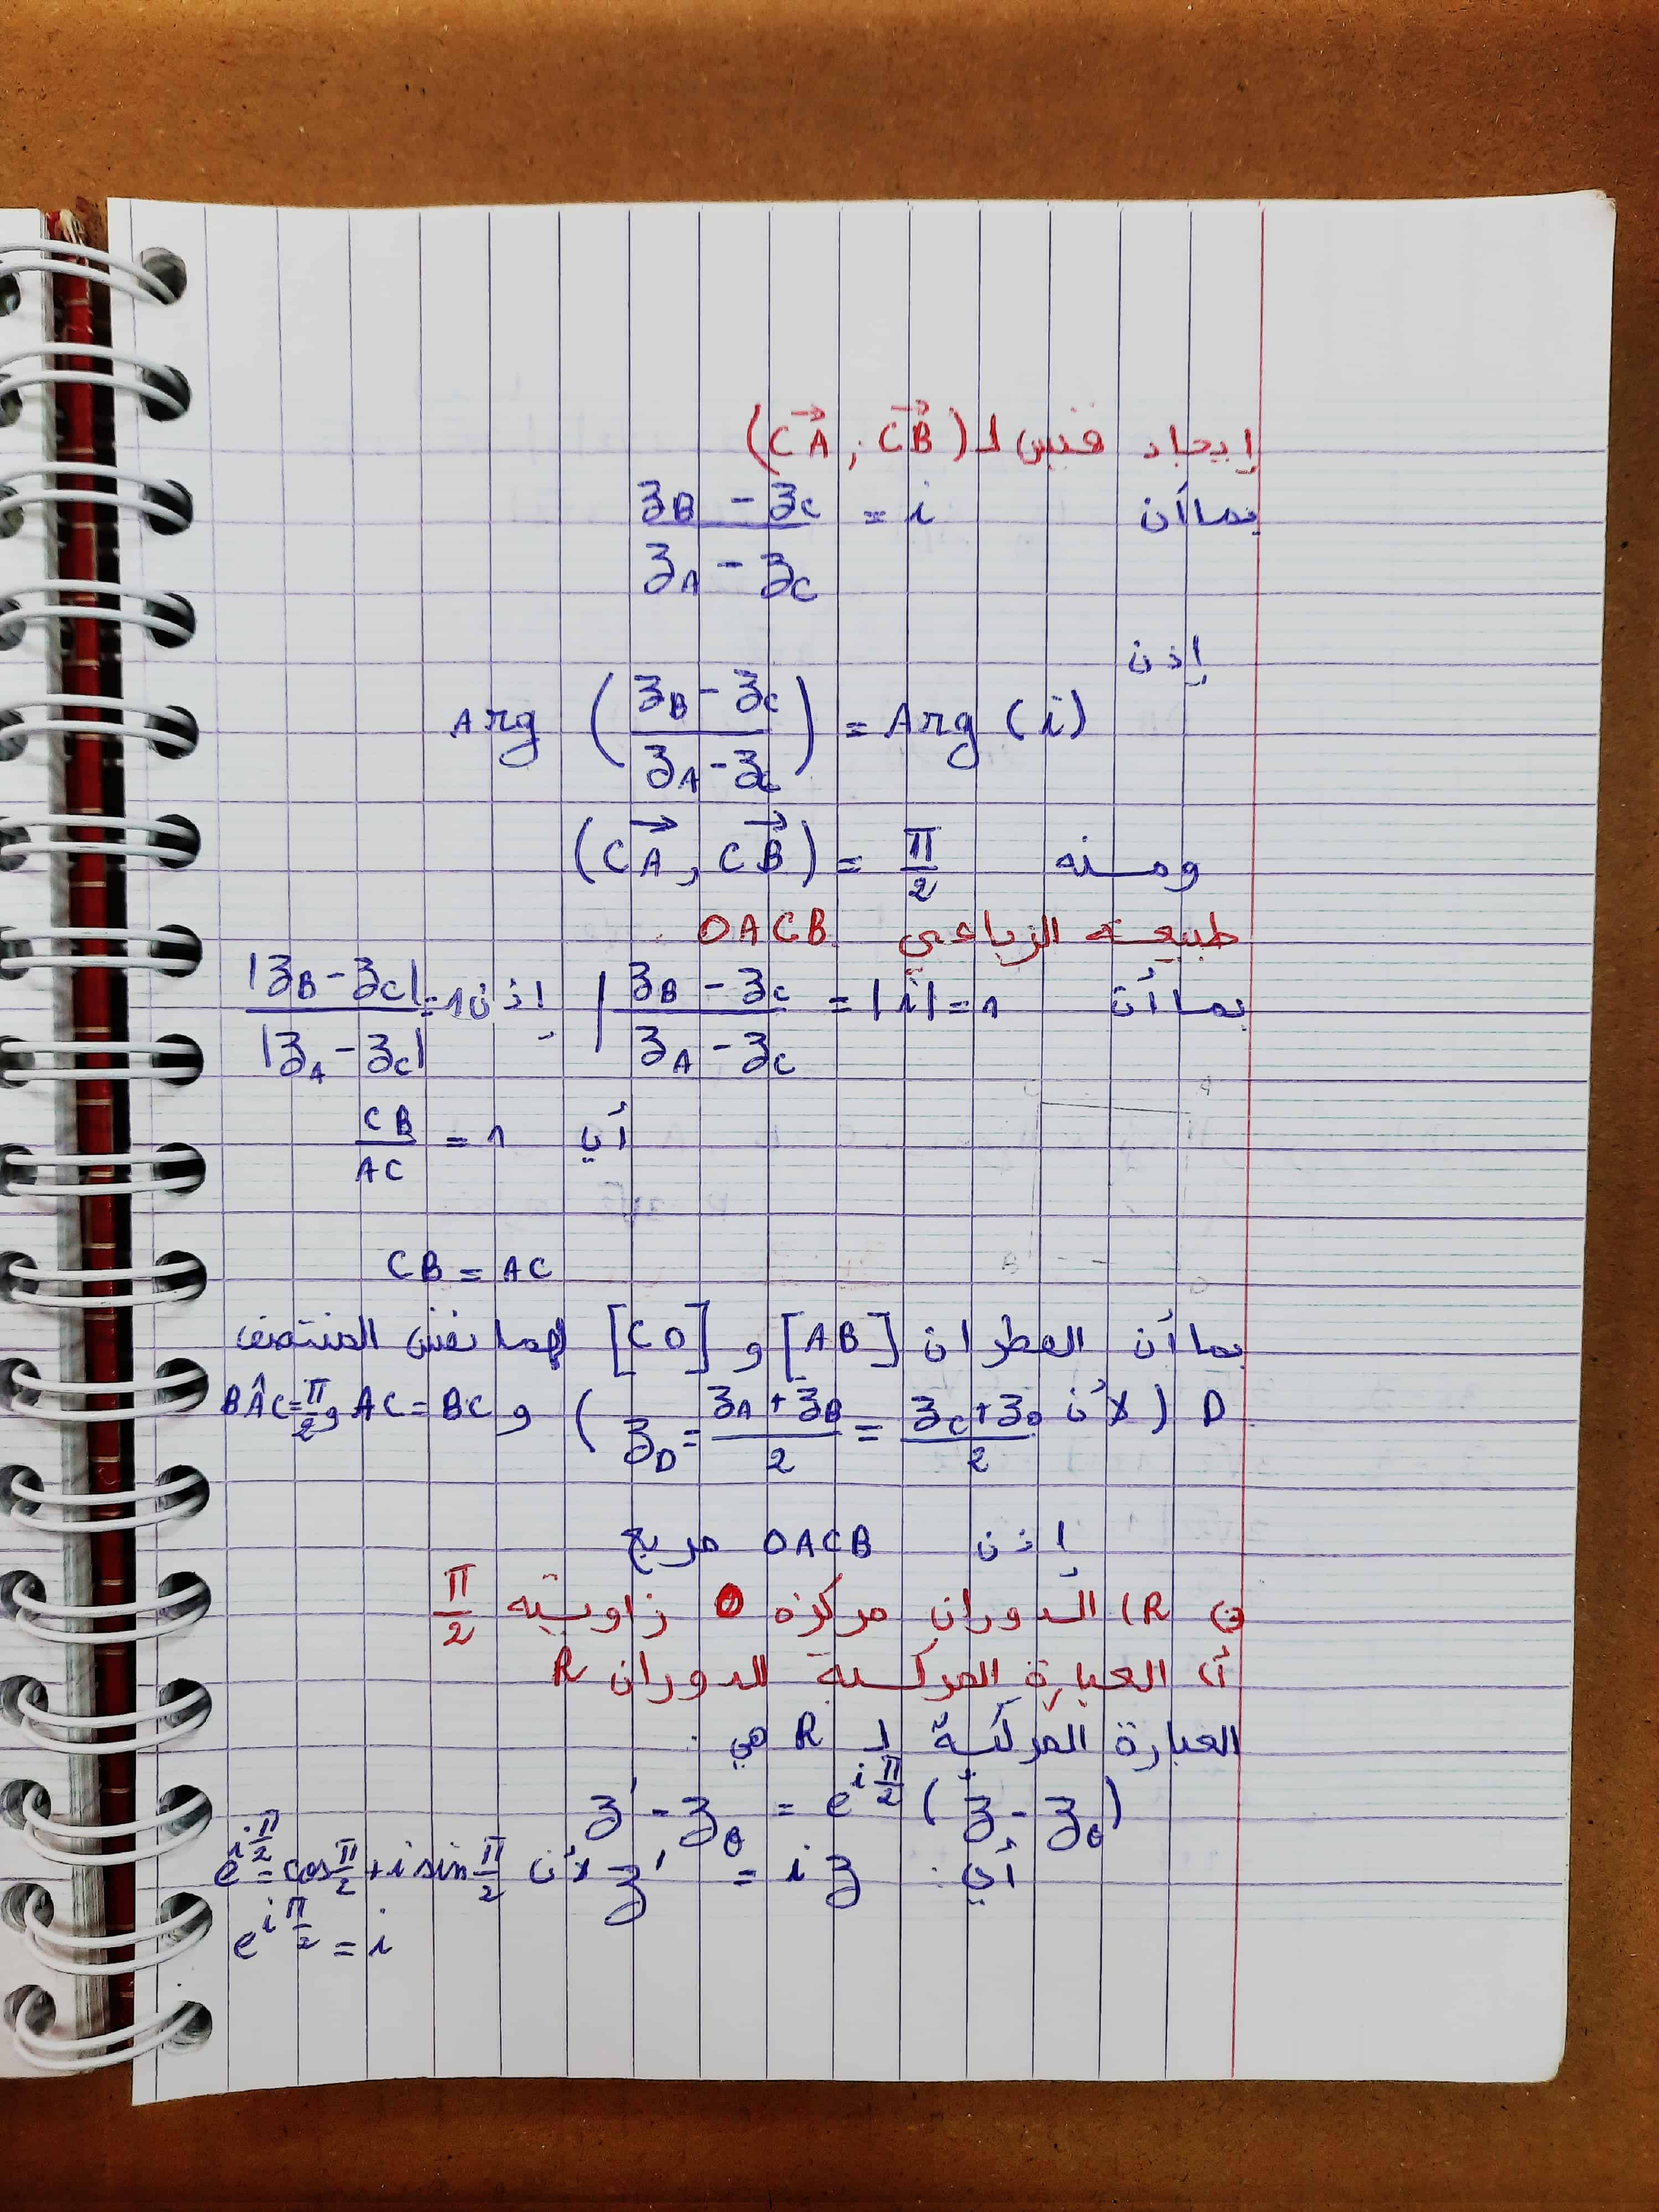 إيجاد قيس لـ (CA→ ; CB→)
بما أن (z_B - z_C)/(z_A - z_C) = i
إذن
Arg ((z_B - z_C)/(z_A - z_C)) = Arg (i)
ومنه (CA→ , CB→) = π/2
طبيعة الرباعي OACB
بما أن |(z_B - z_C)/(z_A - z_C) = |i| = 1 إذن |z_B - z_C|/|z_A - z_C| = 1
أي CB/AC = 1
CB = AC
بما أن القطران [AB] و [CO] لهما نفس المنتصف
D (لأن z_D = (z_A + z_B)/2 = (z_C + z_O)/2) و AC = BC و BÂC = π/2
إذن OACB مربع
R) الدوران مركزه O زاويته π/2
أ) العبارة المركبة للدوران R
العبارة المركبة لـ R هي :
z' - z_O = e^{iπ/2} (z - z_O)
أي : z' = i z لأن e^{iπ/2} = cos π/2 + i sin π/2
e^{iπ/2} = i